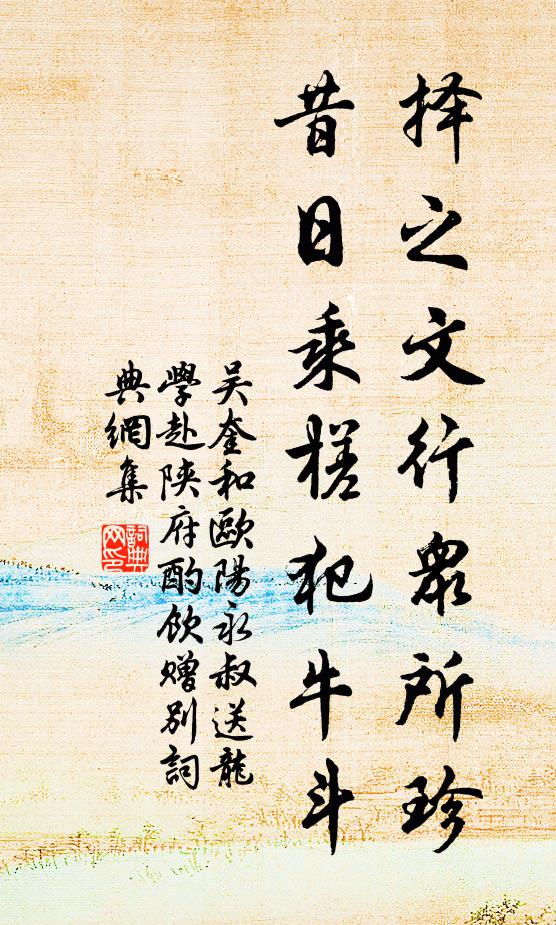 择之文行衆所珍
昔日乘槎犯牛斗
吴奎和歐陽永叔送龍
學赴陝府酌飲赠别詞
典網集
詞典
网印